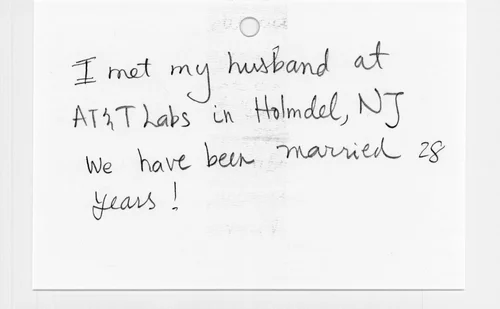 I met my husband at
AT&T Labs in Holmdel, NJ
We have been married 28
years!